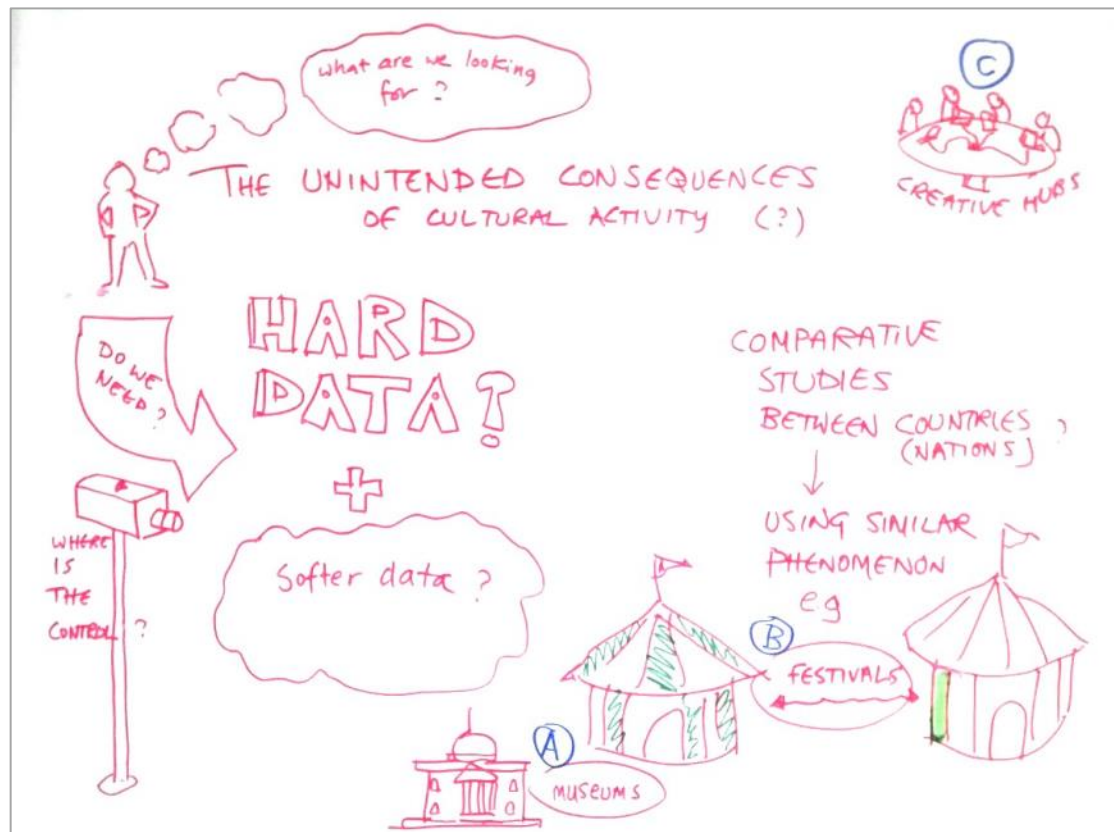 what are we looking
for ?
C
CREATIVE HUBS
THE UNINTENDED CONSEQUENCES
OF CULTURAL ACTIVITY (?)
DO WE
NEED ?
HARD
DATA?
+
Softer data ?
WHERE
IS
THE
CONTROL ?
COMPARATIVE
STUDIES
BETWEEN COUNTRIES ?
(NATIONS)
USING SIMILAR
PHENOMENON
e.g
B
FESTIVALS
A
MUSEUMS